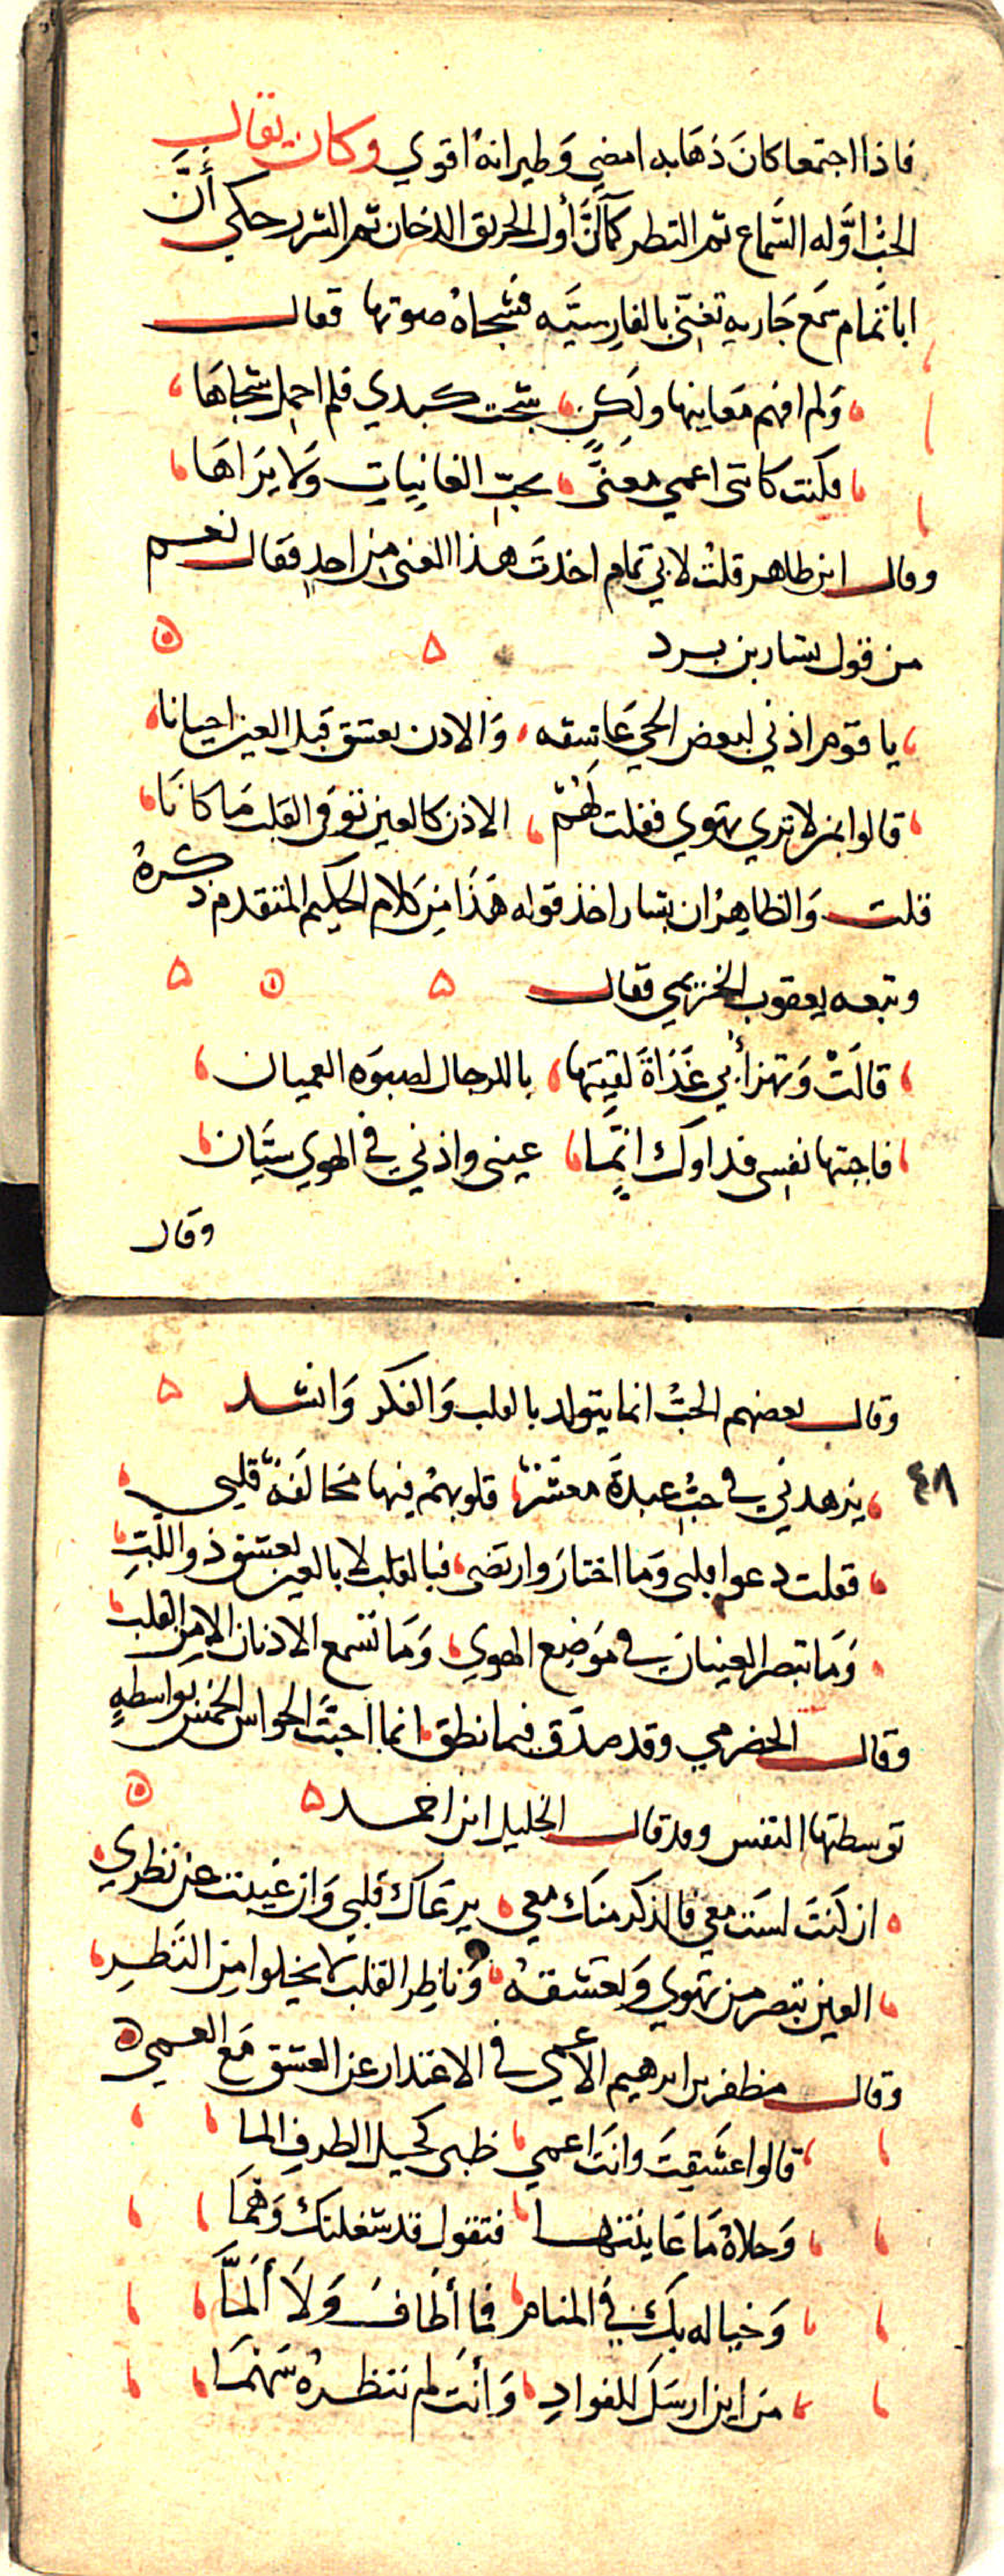 فاذا اجتمعا كانَ ذهَابه امضي وَطيرانهُ اقوي وكان يقال
الحبّ اوَّله السَّماع ثم النظر كما أنَّ أول الحريق الدخان ثم الشرر حكي أنَّ
ابا تمام سمع جَاريه تغنّي بالفارِسيَّه فشجاهُ صوتها فقال
وَلم افهم مَعَانيها ولكِن شجت كبدي فلم اجهل شجاهَا
فكنت كانني اعمي معَنًّى بحبّ الغانِياتِ وَلا يرَاهَا
وقال ابن طاهر قلتُ لابي تمام اخذتَ هذا المعنى من احدٍ فقال نعم
من قول بشار بن برد
يا قوم اذني لبعض الحي عَاشقه وَالاذن تعشق قبل العين احيانا
قالوا بمن لا تري تهوي فقلت لهُمْ الاذن كالعين توفى القلب مَا كانَا
قلت وَالظاهِرُ ان بشار اخذ قوله هَذَا مِن كلام الحكيم المتقدم ذكرهُ
وتبعه يعقوب الخزيمي فقال
قالَتْ وَتهزأُ بي غَدَاةَ لقِيتَها باللرجال لصبوَه العميان
فاجبتها نفسي فداوَك انَّما عيني واذني في الهوي سيَّان
وقال
وقال بعضهم الحبّ انما يتولد بالقلب وَالفكر وَانشد
٤٨
يزهدني في حبّ عبدةَ معشرٌ قلوبهُمْ فيها مخالفَةٌ قلبي
فقلت دعوا قلبى وَما اختارَ وارتضى فبالقلب لا بالعين يعشق ذو اللبِّ
وَمَا تبصر العينان في مَوضِع الهوي وَمَا تسمع الاذنان الا مِن القلبِ
وقال الحضرمي وقد صدَق فيما نطق انما احبَّت الحواس الخمس بواسطهٍ
توسطتها النفس وقد قال الخليل ابن احمد
ان كنتَ لستَ معي فالذكر منكَ معي يرعَاكَ قلبي وَان غيبتَ عن نظري
العين تبصر من تهوي وَتعشقهُ وَناظِر القلب لا يخلوا مِن النَظرِ
وقال مظفر بن ابرهيم الأعمي في الاعتذار عن العشق مَع العمي
قالوا عَشِقِتَ وانتَ اعمي ظبى كحيل الطرفِ الما
وَحلاهُ مَا عَاينتها فتقول قد شغلتك وَهْمَا
وَخياله بكَ في المنام فما أطَافَ وَلَا ألمَّا
من اين ارسَلَ للفوادِ وَأنتَ لم تنظرهُ سَهْمَا